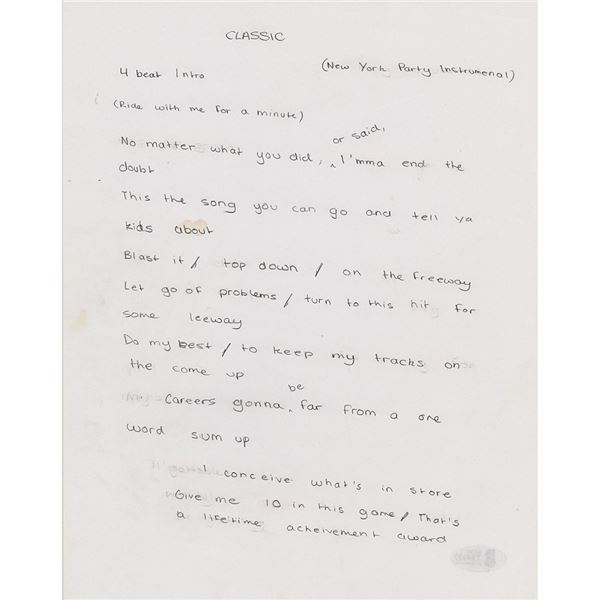 CLASSIC
(New York Party Instrumenal)
4 beat Intro
(Ride with me for a minute)
or said,
No matter what you did, ^ I'mma end the
doubt
This the song you can go and tell ya
kids about
Blast it / top down / on the freeway
Let go of problems / turn to this hit for
some leeway
Do my best / to keep my tracks on
the come up
be
Careers gonna ^ far from a one
word sum up
I conceive what's in store
Give me 10 in this game / That's
a lifetime acheivement award